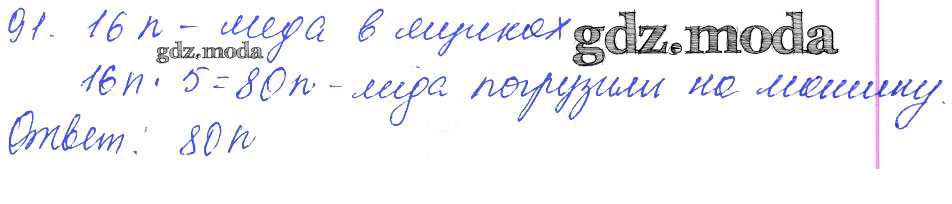 91. 16 п - меда в ящиках gdz.moda
gdz.moda
16п · 5 = 80п - мёда погрузили на машину.
Ответ: 80п